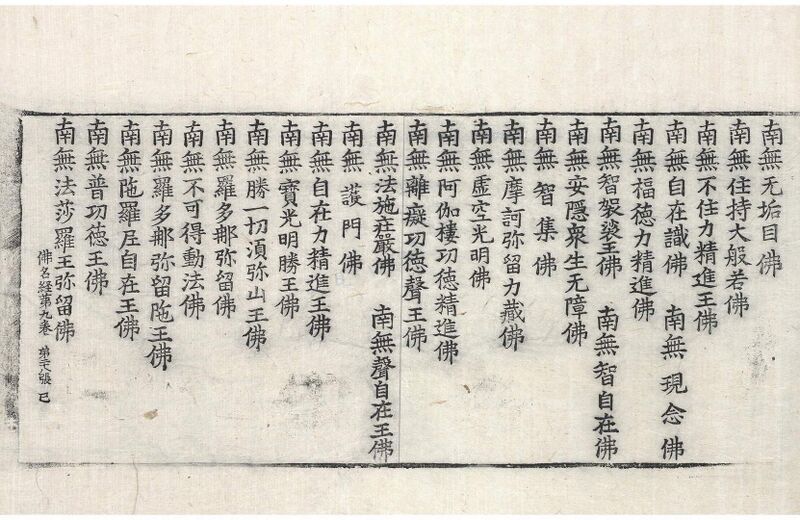 南無无垢目佛
南無住持大般若佛
南無不住力精進王佛
南無自在識佛 南無現念佛
南無福德力精進佛
南無智袈裟王佛 南無智自在佛
南無安隱衆生无障佛
南無智集佛
南無摩訶弥留力藏佛
南無虛空光明佛
南無阿伽樓功德精進佛
南無離癡功德聲王佛
南無法施莊嚴佛 南無聲自在王佛
南無護門佛
南無自在力精進王佛
南無寶光明勝王佛
南無勝一切湏弥山王佛
南無羅多那弥留佛
南無不可得動法佛
南無羅多那弥留陁王佛
南無陁羅尼自在王佛
南無普功德王佛
南無法莎羅王弥留佛
佛名経第九卷 第二張 已